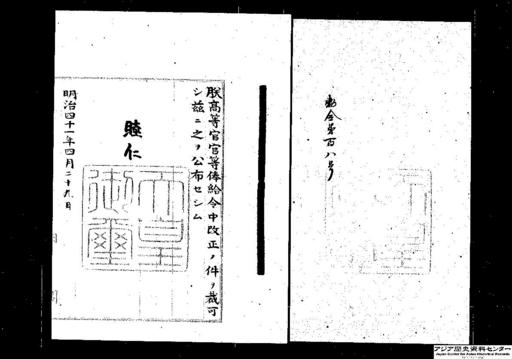 勅令第百八号
朕高等官官等俸給令中改正ノ件ヲ裁可
シ茲ニ之ヲ公布セシム
睦仁
天皇
御璽
明治四十一年四月二十九日
アジア歴史資料センター
Japan Center for Asian Historical Records